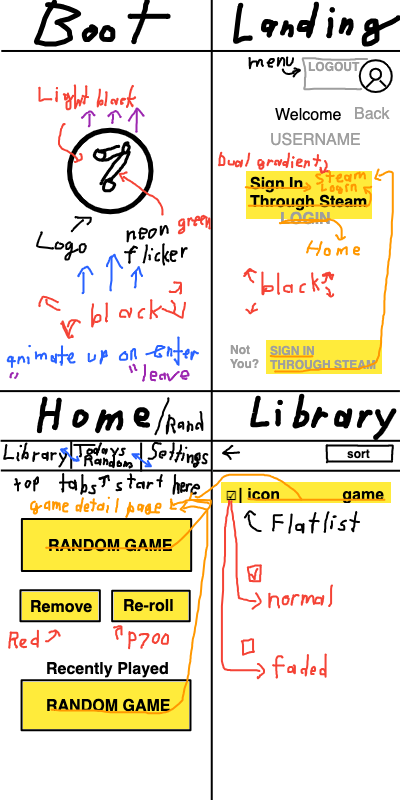 Boot
Light black
Logo
neon green
flicker
black
animate up on Enter
" " leave
Landing
menu
LOGOUT
Welcome Back
USERNAME
Dual gradient
Sign In
Through Steam
Steam
Login
LOGIN
Home
black
Not
You?
SIGN IN
THROUGH STEAM
Home/Rand
Library
Todays
Random
Settings
top tabs start here
game detail page
RANDOM GAME
Remove
Re-roll
Red
P700
Recently Played
RANDOM GAME
Library
sort
icon
game
Flatlist
normal
faded